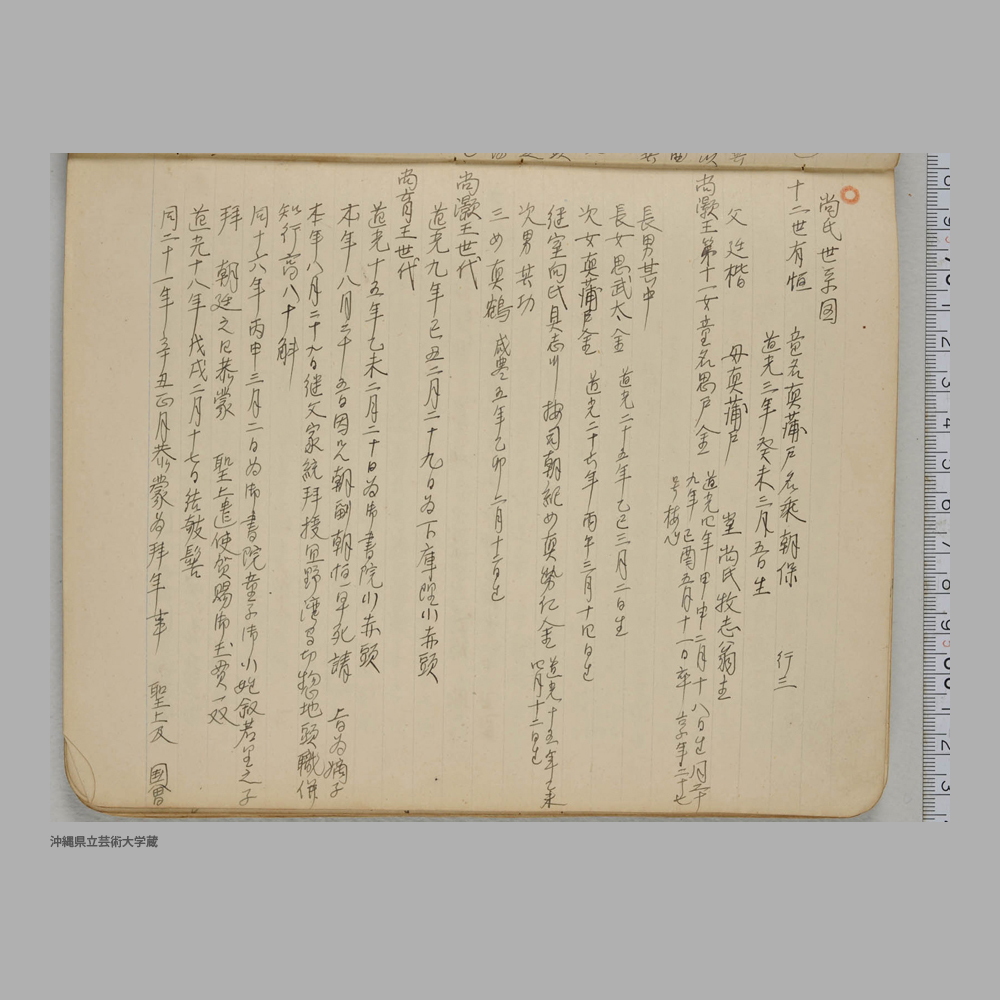 尚氏世系図
十二世有恒
童名真蒲戸名乗朝保 行三
道光三年癸未三月五日生
父 廷楷 母真蒲戸
室尚氏牧志翁主
尚灝王第十一女童名思戸金
道光四年甲申二月十八日生
九年己酉五月十一日卒 享年二十七
長男其中
長女思武太金 道光二十五年乙巳三月二日生
次女真蒲戸金 道光二十六年丙午三月十四日生
継室向氏具志川按司朝紀女真勢仁金 道光十五年乙未
四月十二日生
次男其功
三女真鶴 咸豊五年乙卯二月十二日生
尚灝王世代
道光九年己丑二月二十九日為下庫理小赤頭
尚育王世代
道光十五年乙未二月二十日為御書院小赤頭
本年八月二十五日因兄朝副朝恒早死請 上旨為嫡子
本年八月二十九日継父家統拝授宜野湾間切惣地頭職併
知行高八十斛
同十六年丙申三月二日為御書院童子御小姓叙若里之子
拝 朝廷之日恭蒙 聖上遣使賀賜御玉貫一双
道光十八年戊戌二月十七日結欹髻
同二十一年辛丑正月恭蒙為拝年事 聖上及 国母